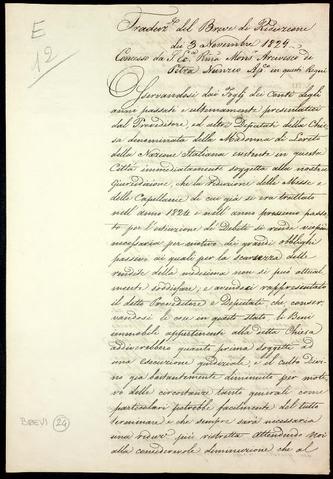 E
12
Traduz.e del Breve di Riduzione
dei 3 Novembre 1824
Concesso da S. Ec.a Rma Mons.r Arcivesco di
Petra Nunzio Ap.co in questi Regni
Osservandosi dai fogli dei Conti degli
anni passati ultimamente presentati
dal Proveditore, ed altri Deputati della Chie
sa denominata della Madonna di Loreto
della Nazione Italiana esistente in questa
Città immediatamente soggetta alla nostra
Giurisdizione, che la riduzione delle Messe e
delle Capellanie di cui già si era trattato
nell'anno 1824 e nell'anno prossimo passa
to per l'estinzione di Debito si rende vieppiù
necessaria per motivo dei grandi obblighi
passivi ai quali per la scarsezza delle
rendite della medesima non si può attual
mente soddisfare, e avendoci rappresentato
il detto Proveditore e Deputati che conser
vandosi le cose in questo stato, li Beni
immobili appartenenti alla detta Chiesa
addiverebbero quanto prima soggetti ad
una esecuzione giudiziale, e il culto Divi
no già bastantemente diminuito per moti
vo delle circostanze tanto generali come
particolari potrebbe facilmente del tutto
terminare e che sempre sarà necessaria
una riduz.e più ristretta attendendo Noi
alla considerevole diminuzione che al
BREVI 24